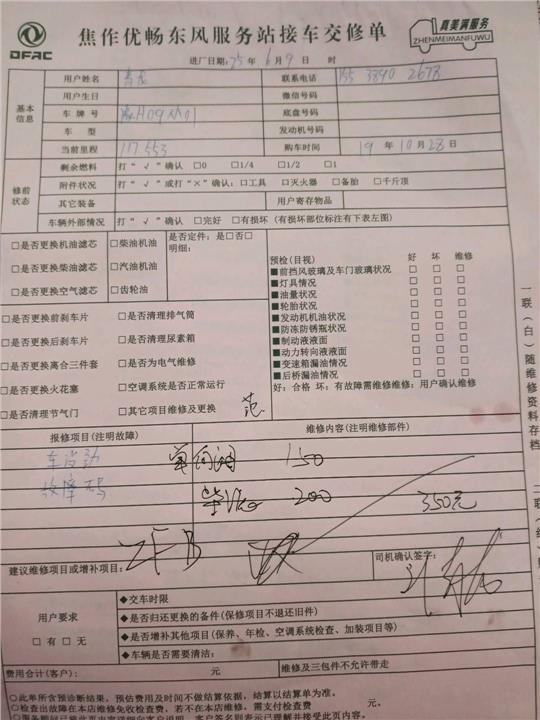 DFAC
焦作优畅东风服务站接车交修单
真美满服务
ZHENMEIMANFUWU
进厂日期:25年6月9日 时
基本信息
用户姓名 联系电话
用户生日 微信号码
车牌号 底盘号码
车型 发动机号码
当前里程 117553 购车时间 19年10月28日
修前状态
剩余燃料 打“√”确认 □0 □1/4 □1/2 □1
附件状况 打“√”或打“×”确认:□工具 □灭火器 □备胎 □千斤顶
其它装备 用户寄存物品
车辆外部情况 打“√”确认 □完好 □有损坏(有损坏部位标注有下表左图)
□是否更换机油滤芯 □柴油机油 是否定件:是□否□
明细:
□是否更换柴油滤芯 □汽油机油
□是否更换空气滤芯 □齿轮油
预检(目视) 好 坏 维修
■前挡风玻璃及车门玻璃状况 □ □ □
■灯具情况 □ □ □
■油量状况 □ □ □
■轮胎状况 □ □ □
■发动机机油状况 □ □ □
■防冻防锈瓶状况 □ □ □
■制动液液面 □ □ □
■动力转向液液面 □ □ □
■变速箱漏油情况 □ □ □
■后桥漏油情况 □ □ □
好:合格 坏:有故障需维修维修:用户确认维修
□是否更换前刹车片 □是否清理排气筒
□是否更换后刹车片 □是否清理尿素箱
□是否更换离合三件套 □是否为电气维修
□是否更换火花塞 □空调系统是否正常运行
□是否清理节气门 □其它项目维修及更换 范
报修项目(注明故障) 维修内容(注明维修部件)
150
故障码 200 350元
建议维修项目或增补项目: 司机确认签字:
用户要求
□有□无
◆交车时限
◆是否归还更换的备件(保修项目不退还旧件)
◆是否增补其他项目(保养、年检、空调系统检查、加装项目等)
◆车辆是否需要清洁:
费用合计(客户): 元 维修及三包件不允许带走
○此单所含预诊断结果,预估费用及时间不做结算依据,结算以结算单为准。
○检查出故障在本店维修免收检查费,若不在本店维修,需支付检查费 元。
一联(白)随维修资料存档